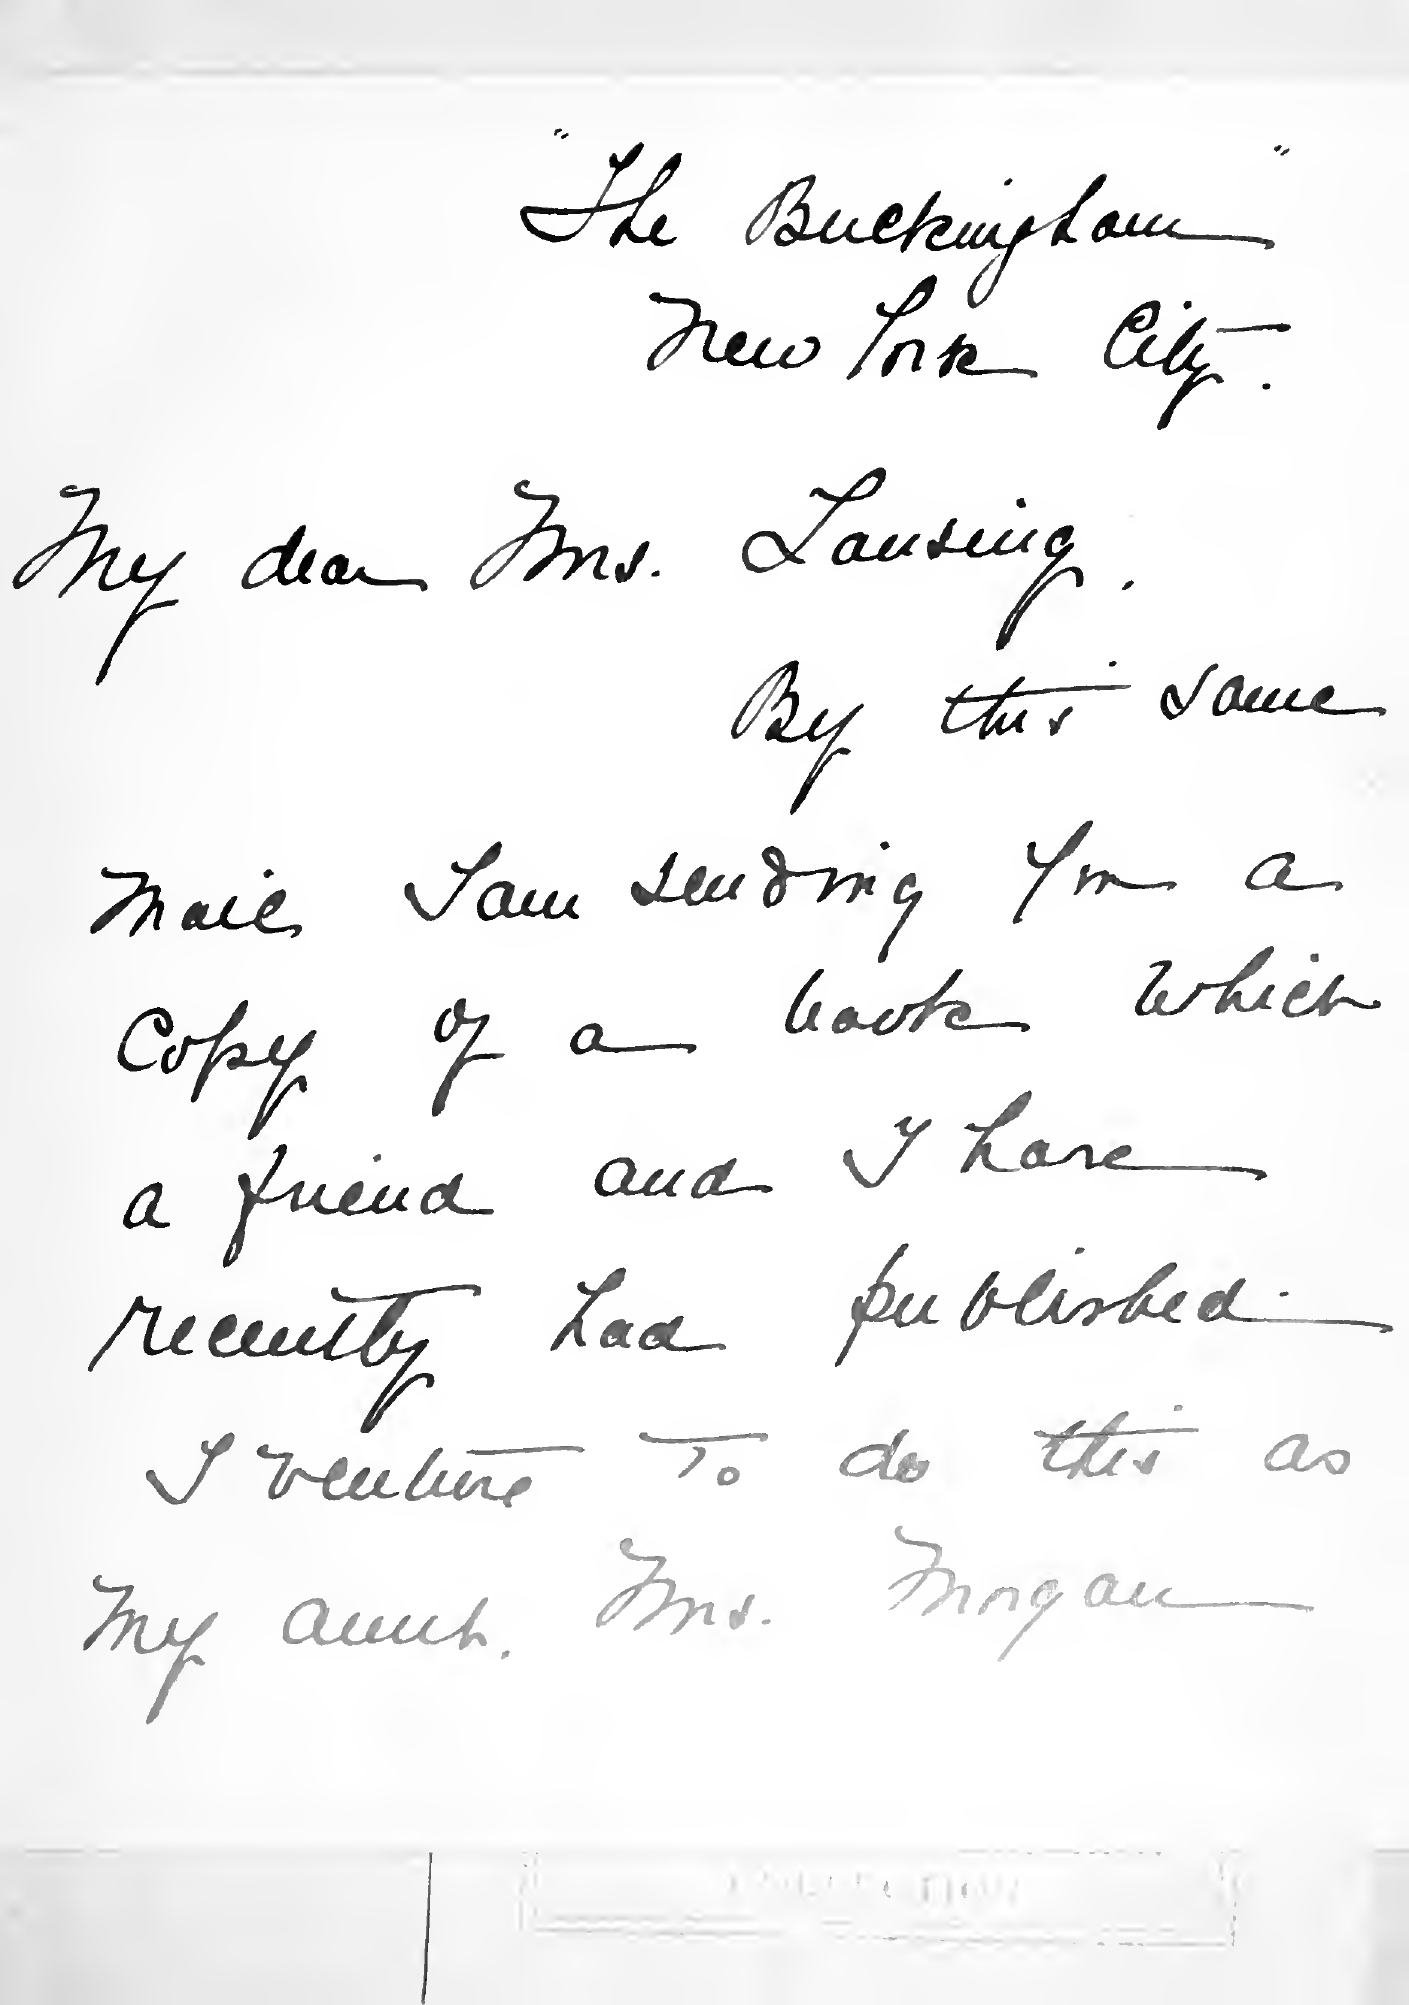 "The Buckingham"
New York City.
My dear Mrs. Lansing.
By this same
mail I am sending you a
copy of a book which
a friend and I have
recently had published.
I venture to do this as
my aunt. Mrs. Morgan
COLLECTION